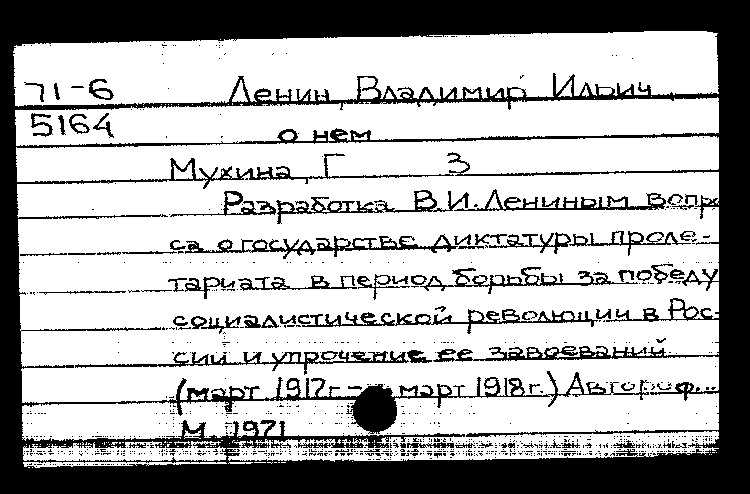 71-6 Ленин, Владимир Ильич
5164 о нем
Мухина, Г З
Разработка В.И.Лениным вопро
са о государстве диктатуры проле-
тариата в период борьбы за победу
социалистической революции в Рос-
сии и упрочение ее завоеваний
(март 1917г.- март 1918г.) Автореф...
М. 1971